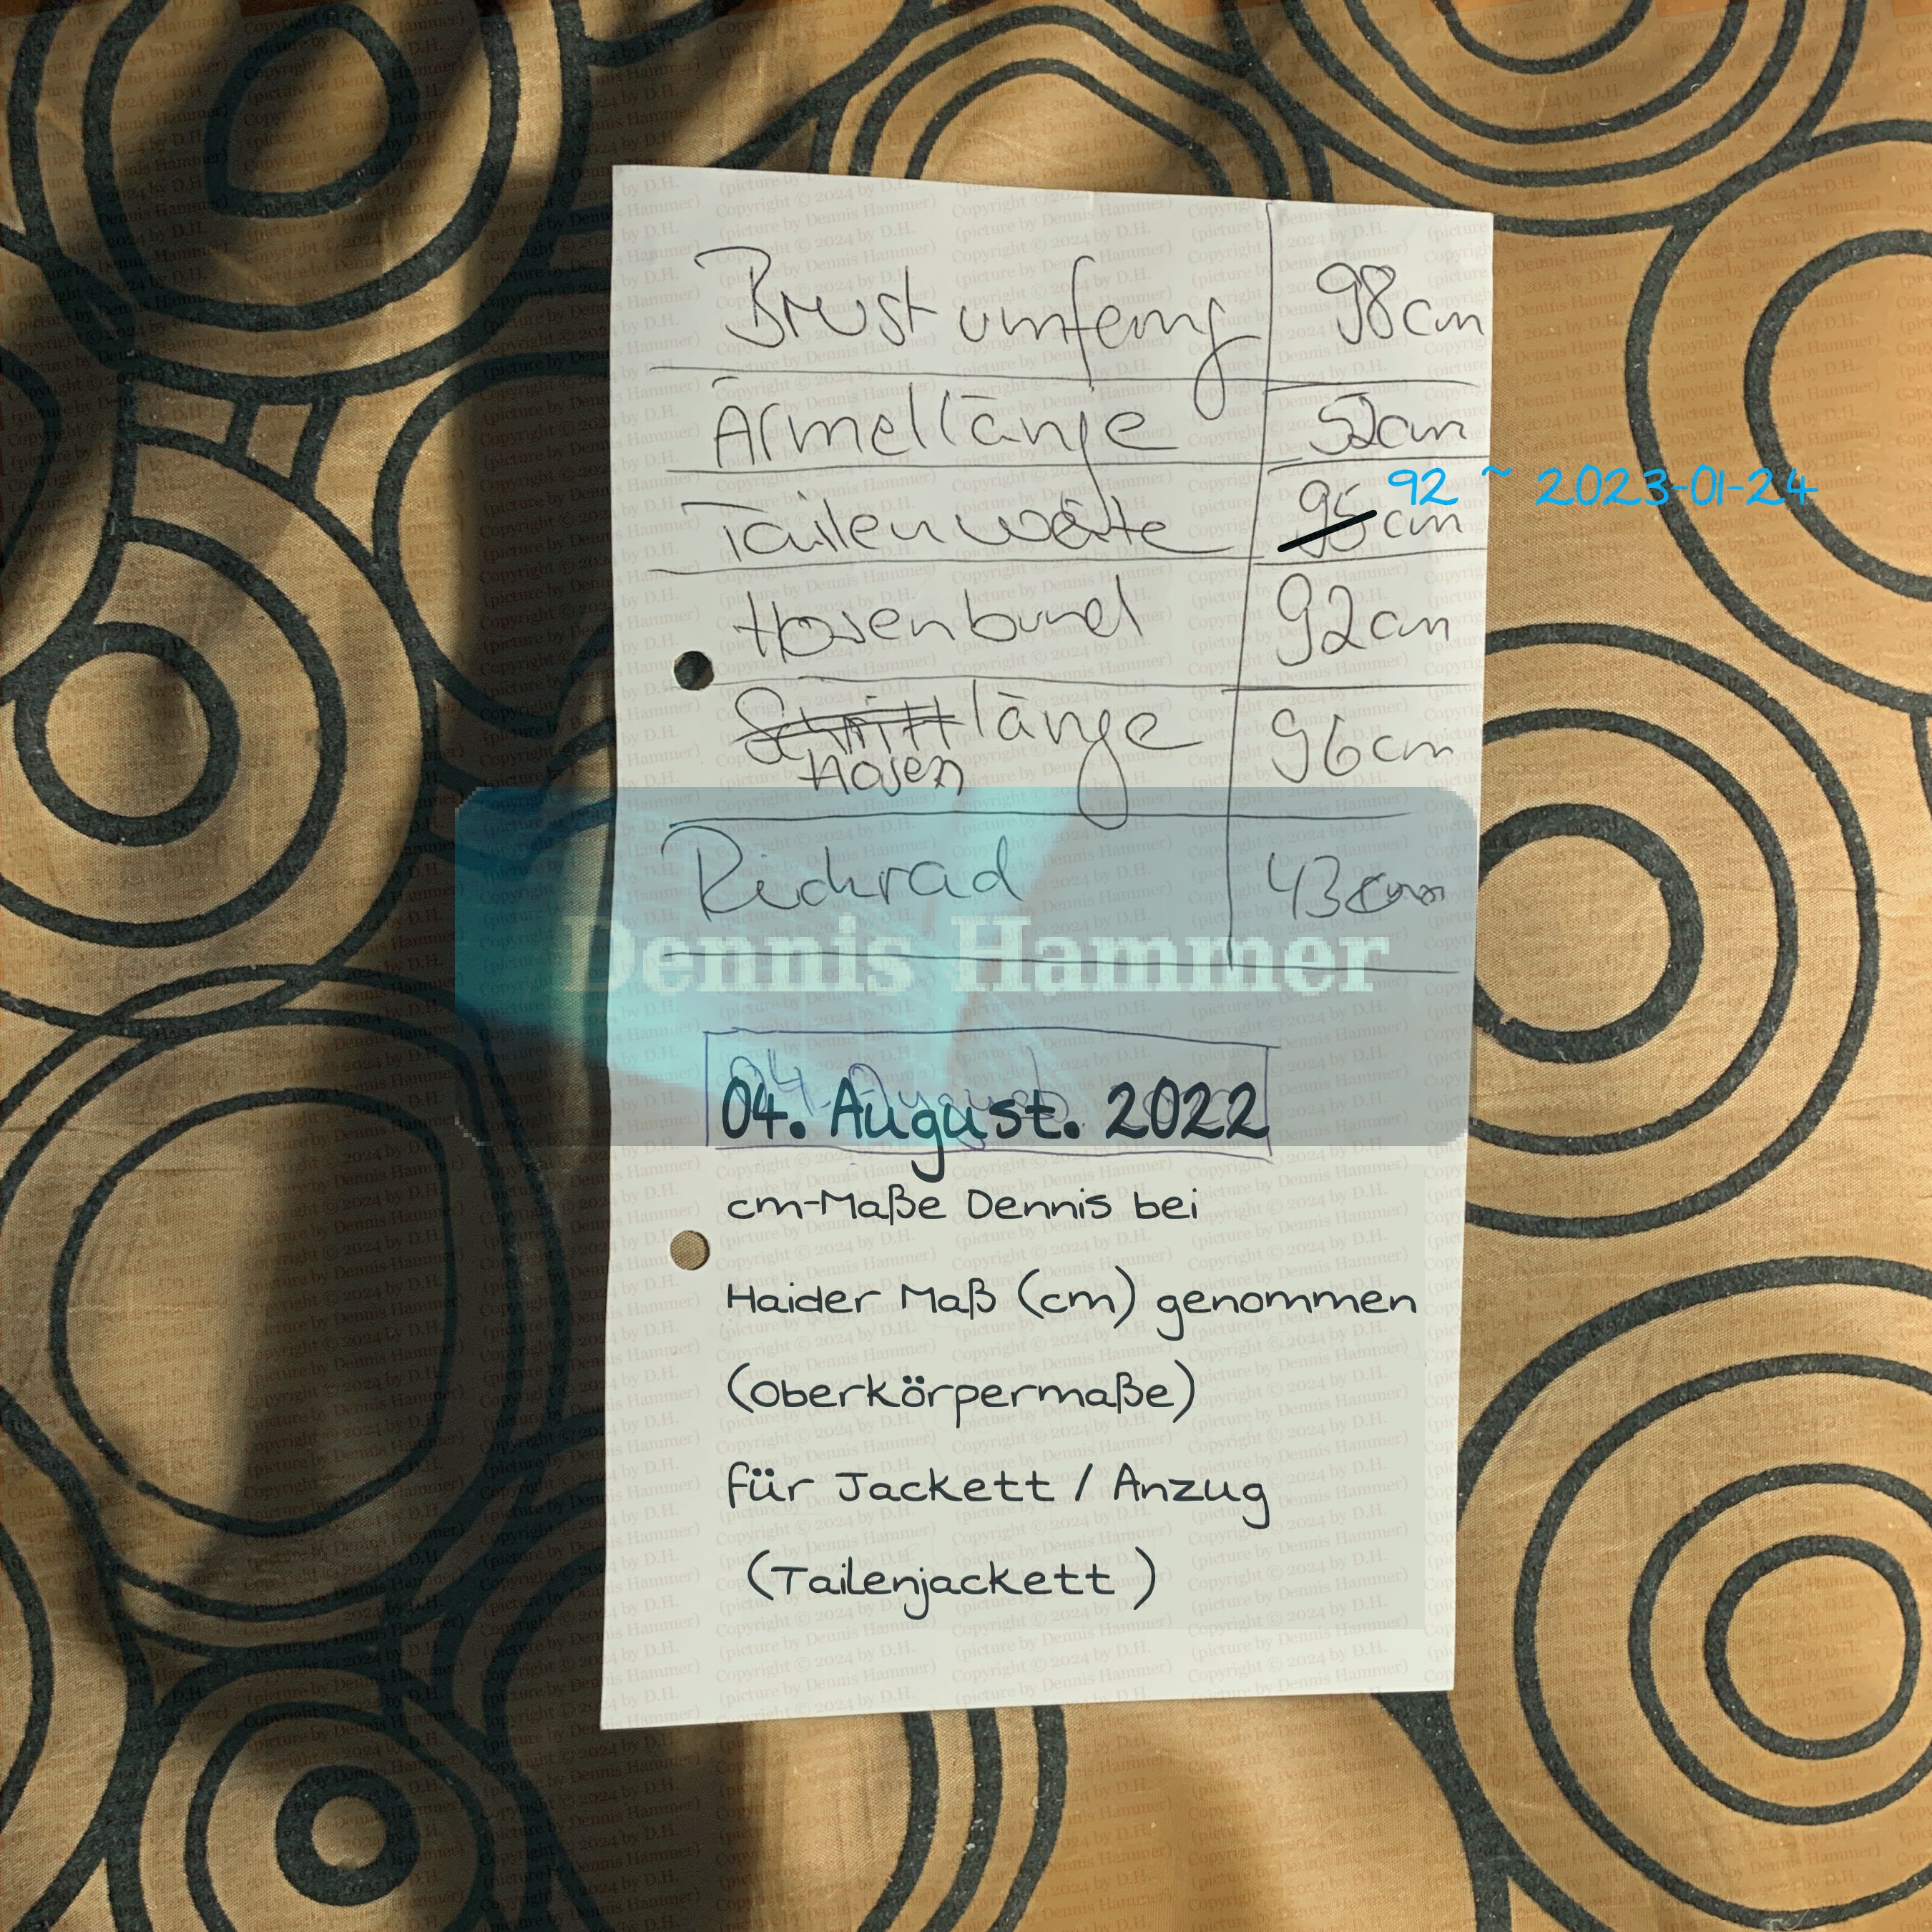 Brustumfang 98cm
Ärmellänge 52cm
92 ~ 2023-01-24
Tailenweite 95cm
Hosenbund 92cm
Schrittlänge 96cm
Hosen
Rückrad 43cm
Dennis Hammer
04. August. 2022
cm-Maße Dennis bei
Haider Maß (cm) genommen
(Oberkörpermaße)
für Jackett / Anzug
(Tailenjackett )
Copyright © 2024 by D.H.
(picture by Dennis Hammer)